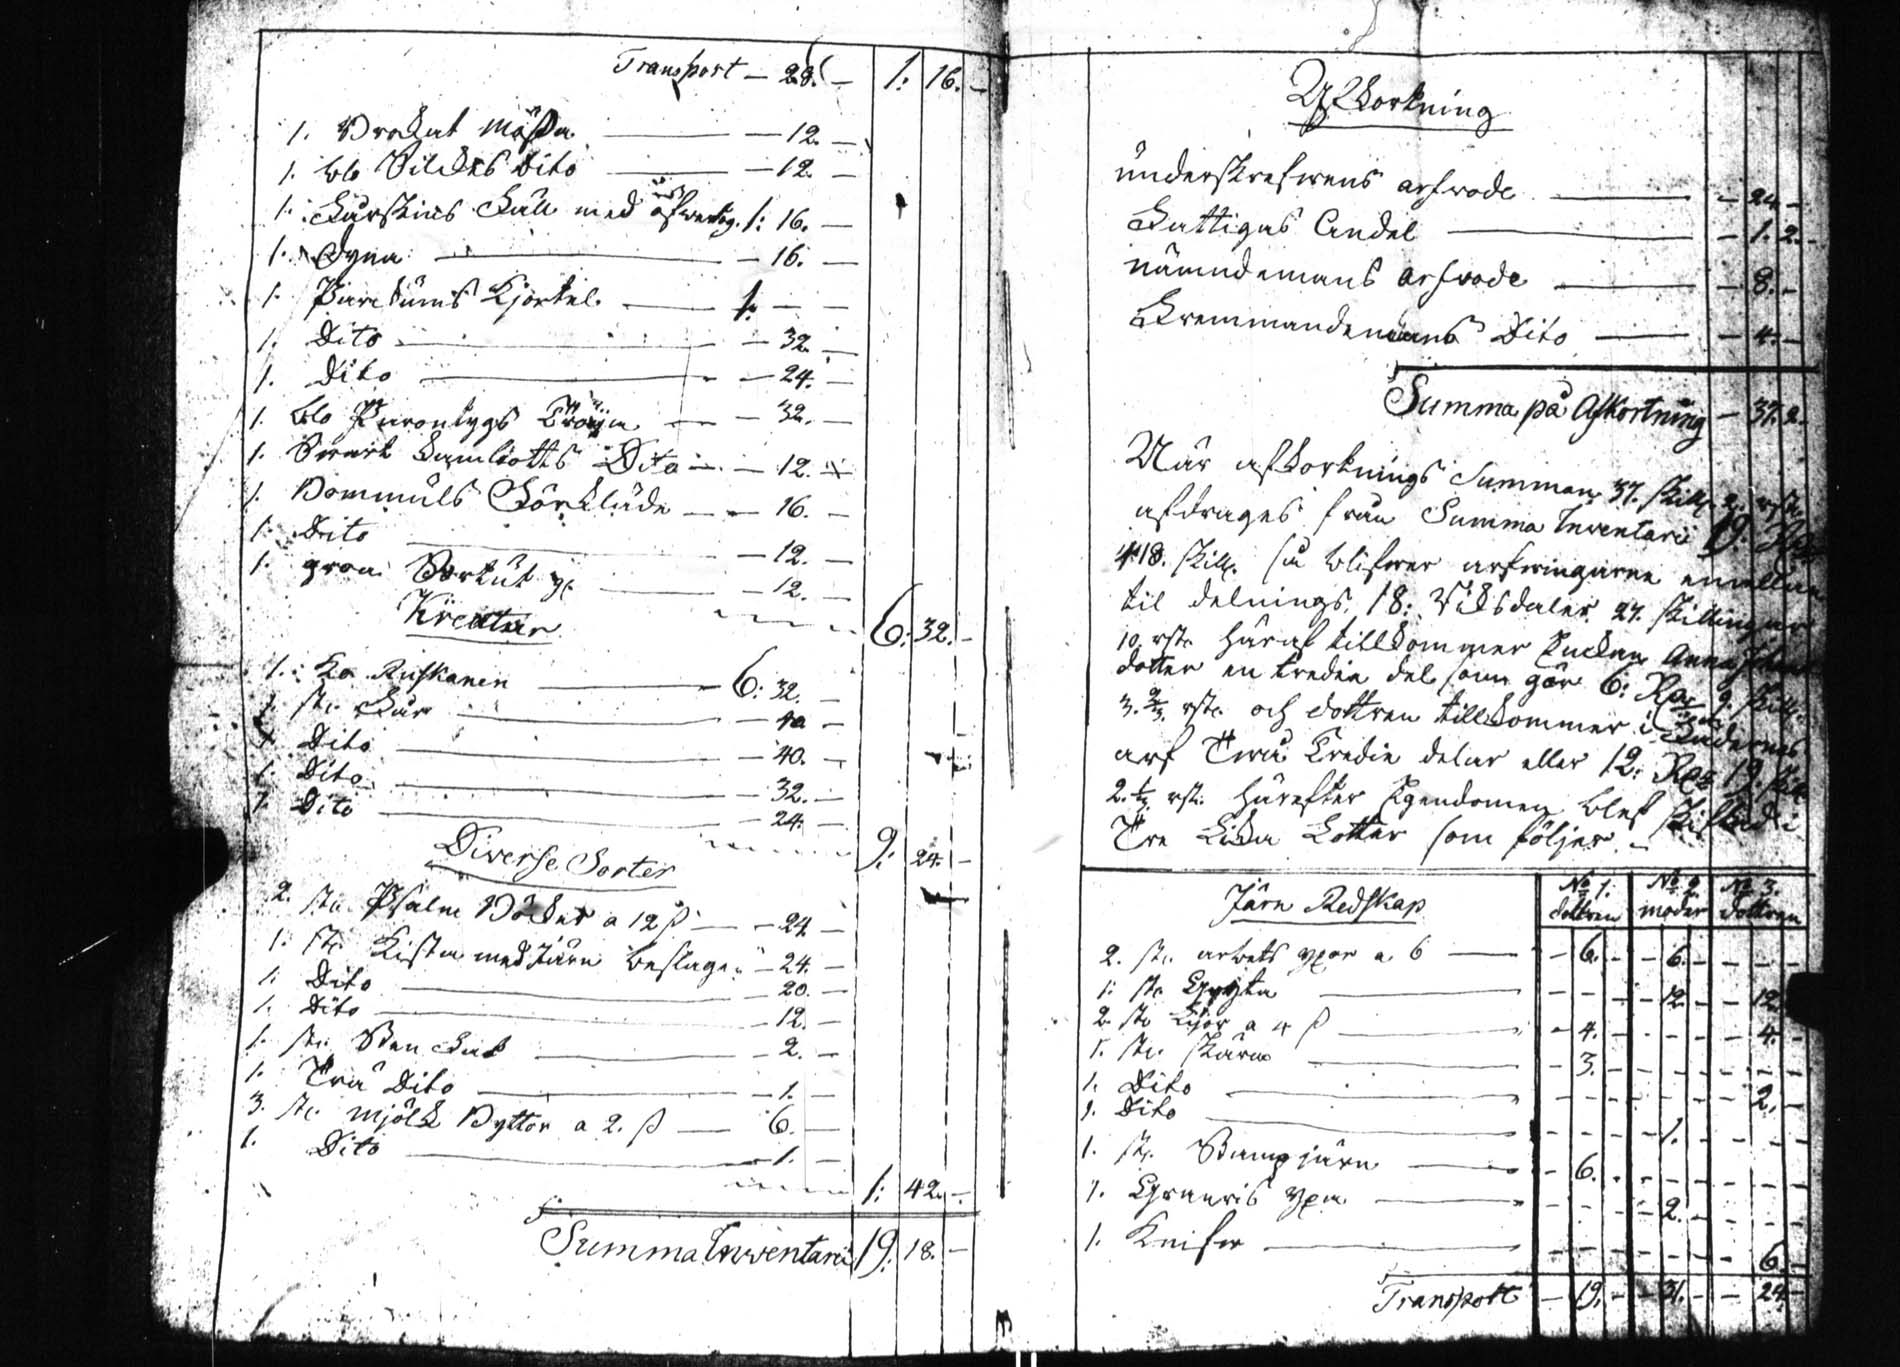 Transport — 28. — 1: 16. —
1. Brokat Mössa — 12. —
1. blå Silkes Dito — 12. —
1. Fårskins Fäll med öfwertyg. 1: 16. —
1. Dyna — 16. —
1. Kjortel. 1: — —
1. Dito — 32. —
1. Dito — 24. —
1. blå Tröija — 32. —
1. Swart Kamlotts Dito — 12. —
1. Bommuls Förkläde — 16. —
1. Dito — 12. —
1. — 12. —
6: 32. —
Kreatur
1. Ko — 6: 32. —
1. st. Får — 40 —
1. Dito — 40. —
1. Dito — 32. —
1. Dito — 24. —
9: 24. —
Diverse Sorter
2. st. Psalm Böcker a 12 ß — 24 —
1. st. Kista med Järn beslage — 24. —
1. Dito — 20. —
1. Dito — 12. —
1. st. Sten Fat — 2. —
1. Trä Dito — 1. —
3. st. Mjölk Byttor a 2. ß — 6. —
1. Dito — 1. —
1: 42. —
Summa Inventarii 19: 18. —
Afkortning
underskrefwens arfwode — 24 —
Fattigas Andel — 1. 2. —
nämndemans arfwode — 8. —
Dito — 4. —
Summa på Afkortning — 37. 2.
När afkortnings Summan 37. skill. 2. rst.
afdrages från Summa Inventarii 19:
18. skill. så blifwer arfwingarne emellan
til delnings. 18: Riksdaler 27. skillingar
10. rst. häraf tillkommer Enckan Anna
dotter en tredie del som gör 6: 9 skill.
3. 2/3. rst. och dottren tillkommer i Fadernes
arf Twå Tredie delar eller 12:
2. rst. härefter Egendomen blef skiftad i
Tre Lika Lotter som följer. —
Järn Redskap No 1. dottren No 2. moder No 3. dottren
2. st. arbets yxor a 6 — 6. — 6. —
1. st. Gryta — 12 — 12
2. st. a 4 ß — 4. — 4. —
1. st. Skära — 3. —
1. Dito — 2. —
1. Dito — 1. —
1. st. Stampjärn — 6. —
1. yxa — 2. —
1. Knifw — 6. —
Transport — 19. — 31. — 24 —